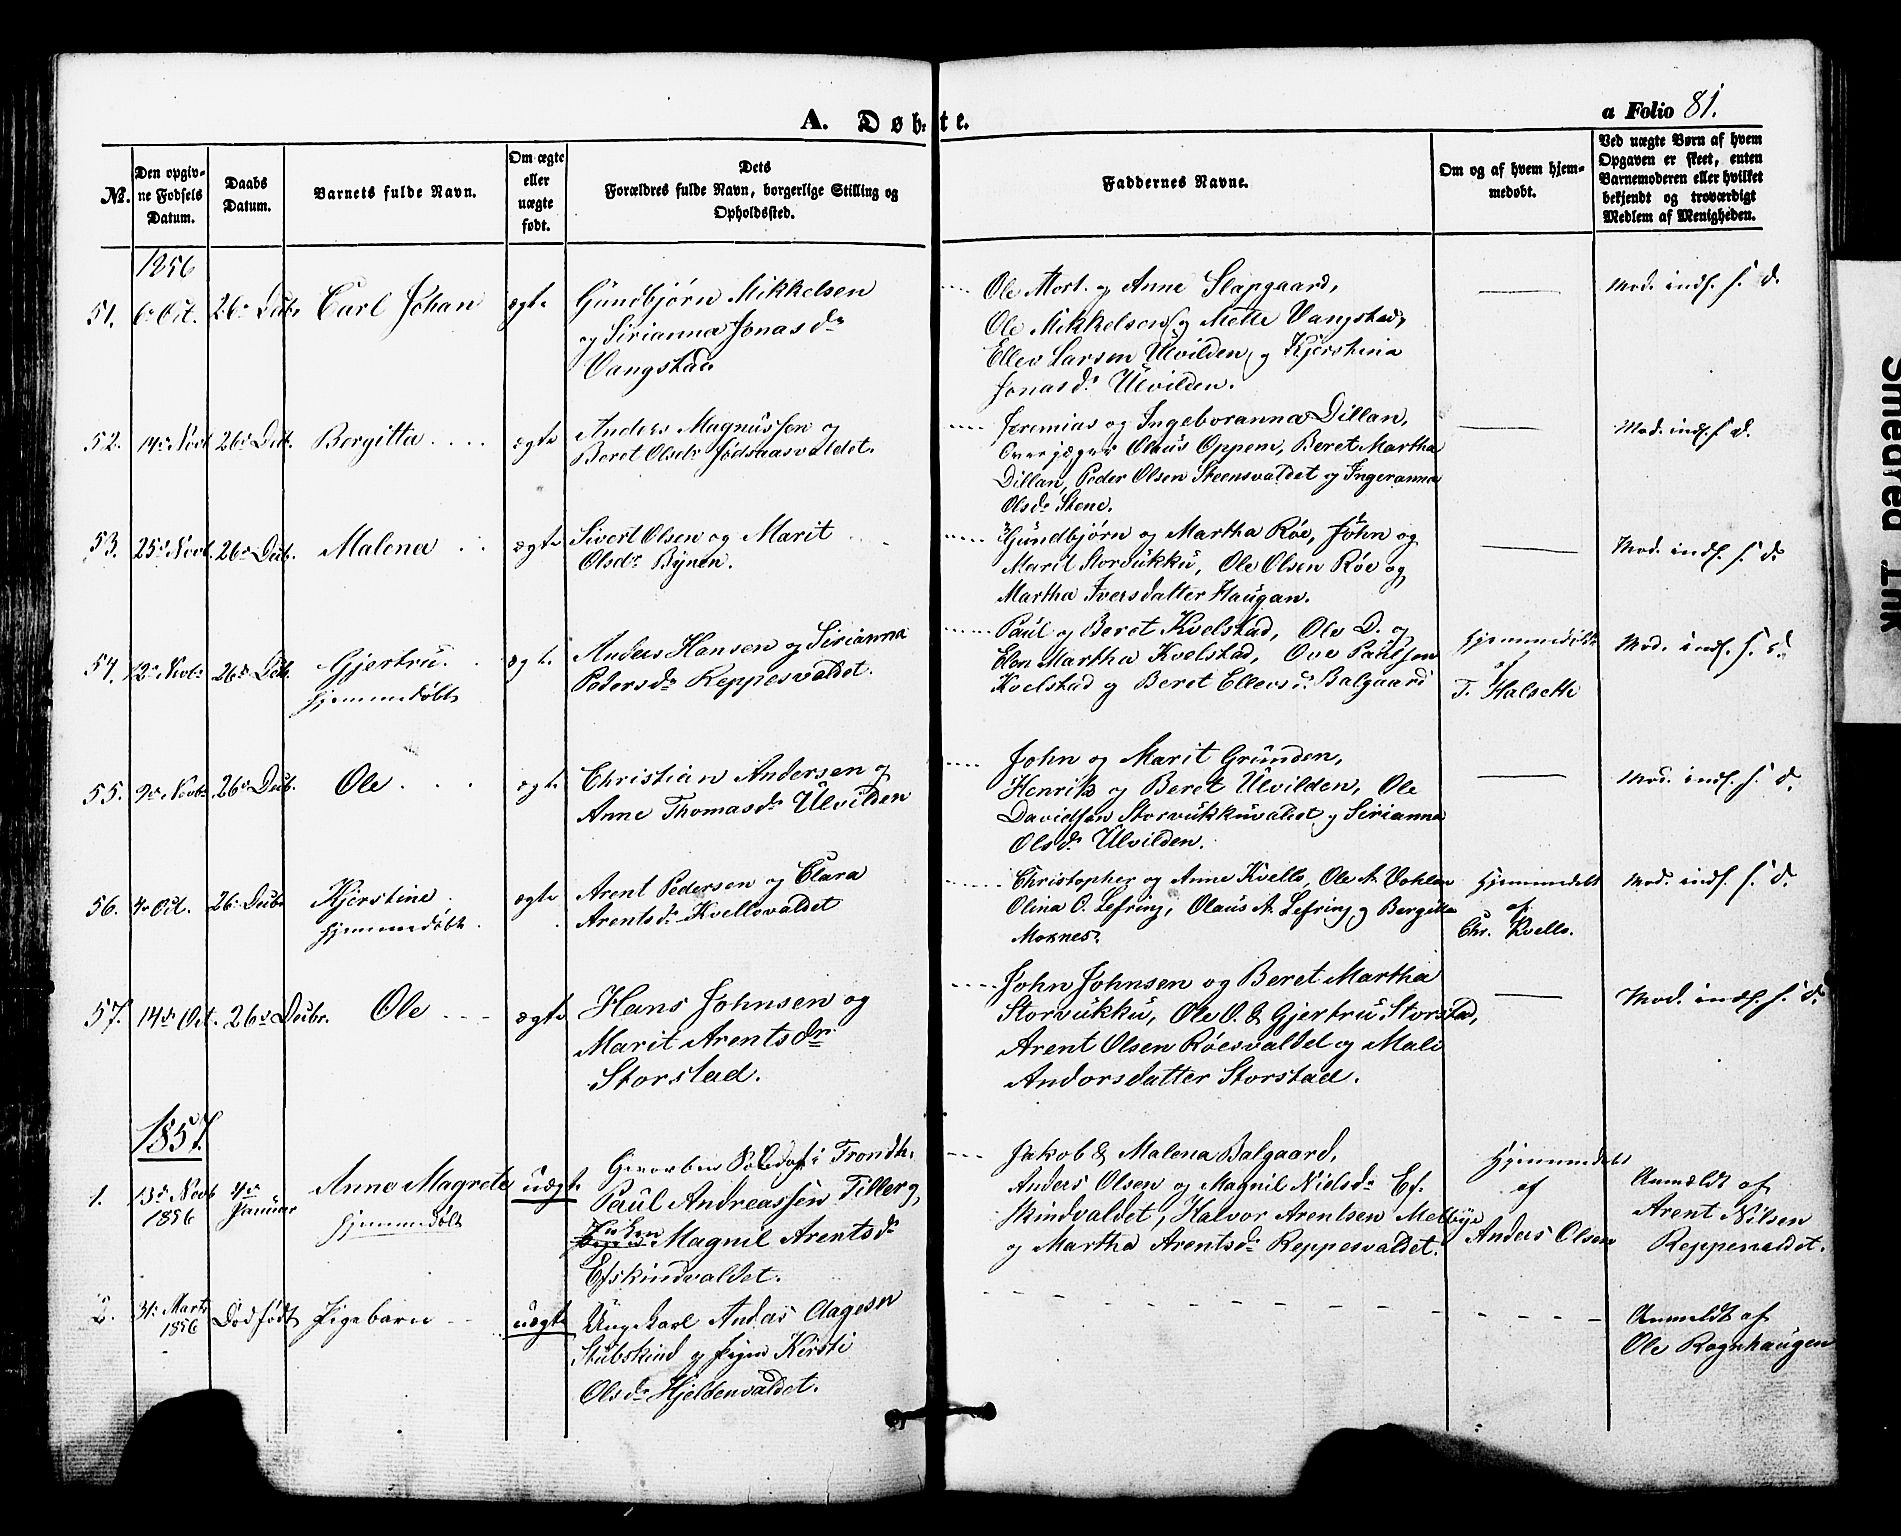 A. Døbte.
a Folio 81.
No.
Den opgivne Fødsels Datum.
Daabs Datum.
Barnets fulde Navn.
Om ægte eller uægte født.
Dets Forældres fulde Navn, borgerlige Stilling og Opholdssted.
Faddernes Navne.
Om og af hvem hjemmedøbt.
Ved uægte Børn af hvem Opgaven er skeet, enten Barnemoderen eller hvilket bekjendt og troværdigt Medlem af Menigheden.
1856
51. 6 Oct. 26 Decbr Carl Johan ægte
Gundbjørn Mikkelsen
og Sirianna Jonasdr
Vangstad.
Ole Mort. og Anne Slapgaard,
Ole Mikkelsen og Mette Vangstad,
Ellev Larsen Ulvilden og Kjerstina
Jonasdr Ulvilden.
Mod. indf. f. d.
52. 14 Novb 26 Decb. Bergitta ægte
Anders Magnussen og
Beret Olsdr Jødsaasvaldet.
Jeremias og Ingeboranna Dillan,
Overjæger Olaus Oppem, Beret Martha
Dillan, Peder Olsen Steensvaldet og Ingeranna
Olsdr Stene.
Mod. indf. f. d.
53. 25 Novb. 26 Decb. Malena ægte
Sivert Olsen og Marit
Olsdr Bynen.
Gundbjørn og Martha Røe, John og
Marit Storvukku, Ole Olsen Røe og
Martha Iversdatter Haugan.
Mod. indf. f. d.
54. 12 Novbr 26 Decb. Gjertru.
hjemmedøbt
ægte
Anders Hansen og Sirianna
Pedersdr Reppesvaldet.
Paul og Beret Kvelstad, Ole D. og
Elen Martha Kvelstad, Ove Paulsen
Kvelstad og Beret Ellevsd. Balgaard
Hjemmedøbt
af
T. Halseth
Mod. indf. f. d.
55. 9 Novbr 26 Decb. Ole ægte
Christian Andersen og
Anne Thomasdr Ulvilden
John og Marit Grunden,
Henrik og Beret Ulvilden, Ole
Davidsen Storvukkuvaldet og Sirianna
Olsdr Ulvilden.
Mod. indf. f. d.
56. 4 Oct. 26 Decbr Kjerstine
hjemmedøbt.
ægte
Arent Pedersen og Clara
Arentsdr Kvellovaldet
Christopher og Anne Kvello, Ole A. Vohlen
Olina O. Lefring, Olaus A. Lefring og Bergitta
Moxnes.
Hjemmedøbt
af
Chr. Kvello.
Mod. indf. f. d.
57. 14 Oct. 26 Decbr. Ole ægte
Hans Johnsen og
Marit Arentsdr
Storstad.
John Johnsen og Beret Martha
Storvukku, Ole O. & Gjertru Storstad,
Arent Olsen Røesvaldet og Mali
Andorsdatter Storstad.
Mod. indf. f. d.
1857.
1. 13 Novb 1856 4 Januar
Anne Magrete
hjemmedøbt
uægte
Gevorben Soldat i Trondh.
Paul Andreassen Tiller og
Magnil Arentsdr
Efskindvaldet.
Jakob & Malena Balgaard,
Anders Olsen og Magnil Nielsdr Ef-
skindvaldet, Halvor Arentsen Melbye
og Martha Arentsdr Reppesvaldet.
Hjemmedøbt
af
Anders Olsen
Anmeldt af
Arent Nilsen
Reppesvaldet.
2. 31 Marts 1856 Dødfødt Pigebarn uægte
Ungkarl Andas Aagesen
Stubskind og Pigen Kirsti
Olsdr Hjeldenvaldet.
Anmeldt af
Ole Rognhaugen
Smeared Ink